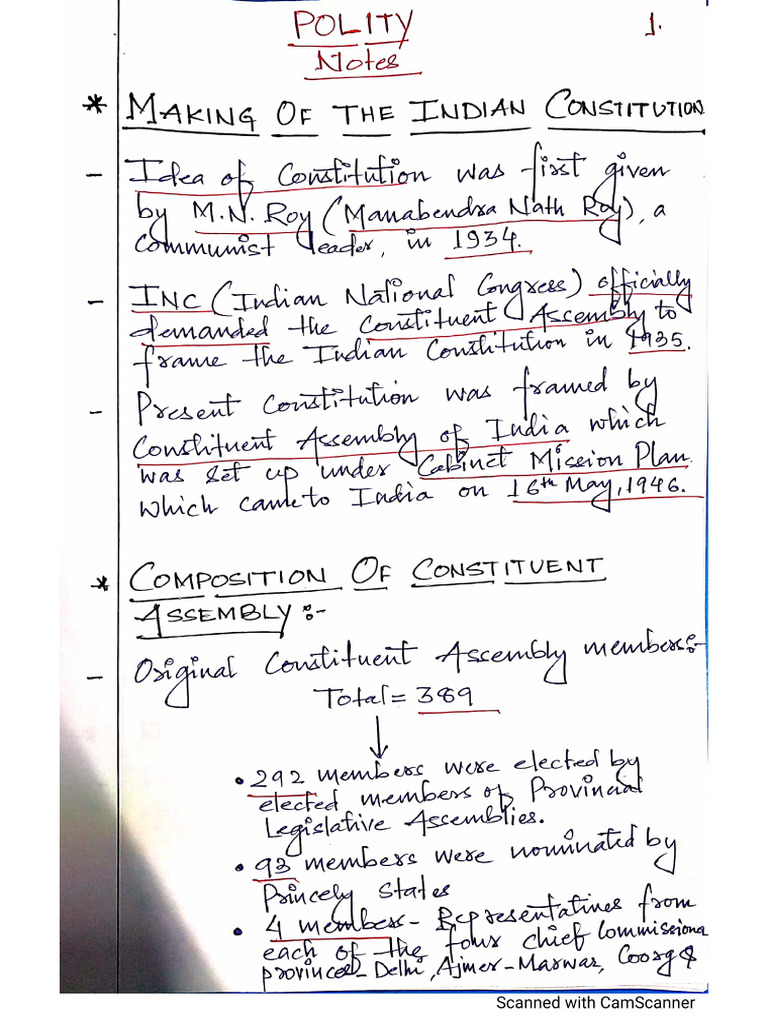 POLITY 1.
Notes
* MAKING OF THE INDIAN CONSTITUTION
- Idea of Constitution was first given
by M.N. Roy (Manabendra Nath Roy), a
communist leader, in 1934.
- INC (Indian National Congress) officially
demanded the Constituent Assembly to
frame the Indian Constitution in 1935.
- Present Constitution was framed by
Constituent Assembly of India which
was set up under Cabinet Mission Plan
which came to India on 16th May, 1946.
* COMPOSITION OF CONSTITUENT
ASSEMBLY :-
- Original Constituent Assembly members:-
Total = 389
↓
• 292 members were elected by
elected members of Provincial
Legislative Assemblies.
• 93 members were nominated by
Princely States
• 4 members - Representatives from
each of the four chief Commissiona
provinces - Delhi, Ajmer-Marwar, Coorg &
Scanned with CamScanner